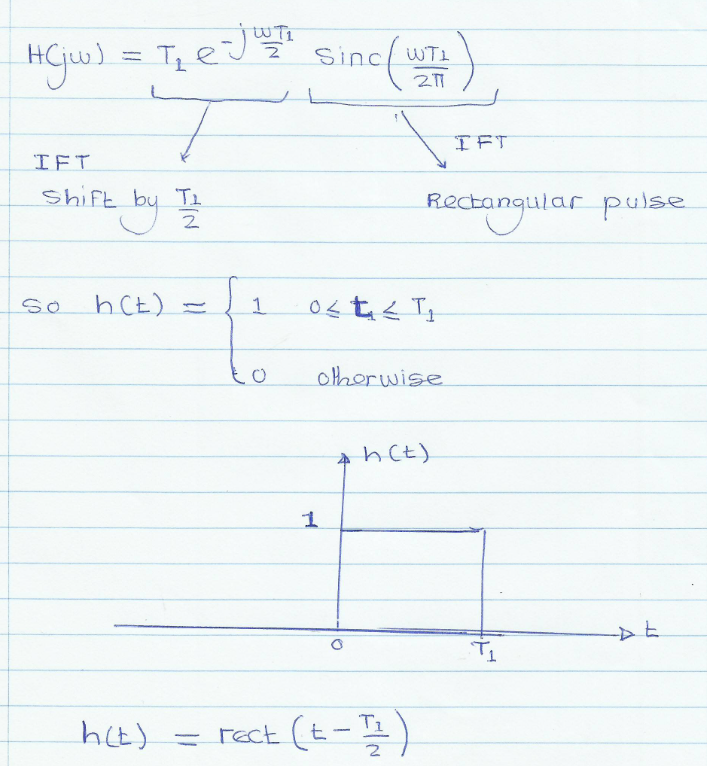 H(jω) = T₁ e^(-jωT₁/2) sinc(ωT₁/2π)
IFT
IFT
shift by T₁/2
Rectangular pulse
so h(t) = { 1 0 ≤ t ≤ T₁
0 otherwise
h(t)
1
0 T₁ t
h(t) = rect(t - T₁/2)